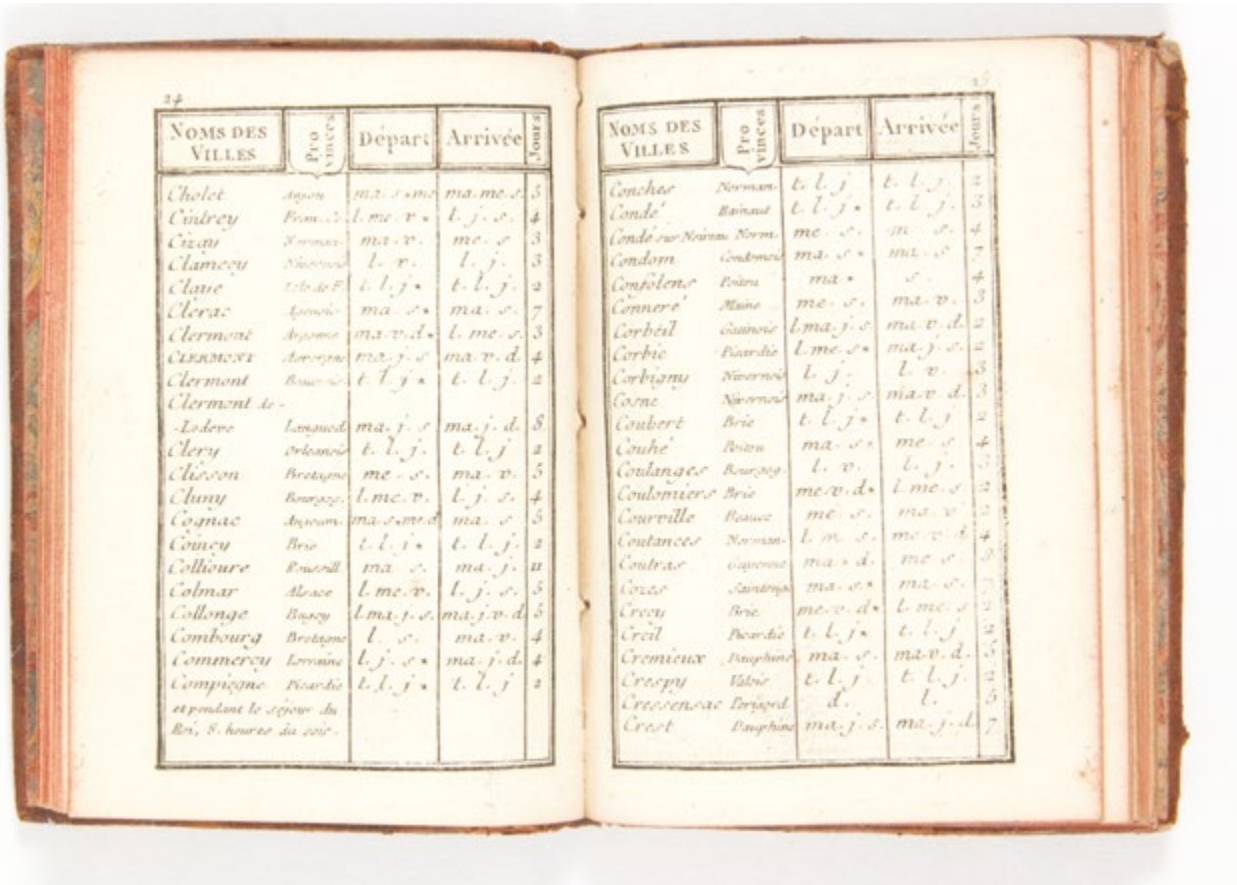 24
NOMS DES VILLES Provinces Départ Arrivée Jours
Cholet Anjou ma. s* me ma. me. s. 5
Cintrey Fran. Co l. me. v* l. j. s. 4
Cizay Norman. ma. v. me. s 3
Clamecy Nivernois l. v. l. j. 3
Claie Isle de F. t. l. j* t. l. j. 2
Clerac Agenois ma. s* ma. s. 7
Clermont Argonne ma. v. d* l. me. s. 3
CLERMONT Auvergne ma. j. s ma. v. d. 4
Clermont Beauvais. t. l. j* t. l. j. 2
Clermont de-
-Lodeve Langued. ma. j. s ma. j. d. 8
Clery Orleanois t. l. j. t. l. j 2
Clisson Bretagne me. s. ma. v. 5
Cluny Bourgog. l. me. v. l. j. s. 4
Cognac Angoum. ma. s* me. d ma. s 5
Coincy Brie t. l. j* t. l. j. 2
Collioure Roussill. ma s. ma. j. 11
Colmar Alsace l. me. v. l. j. s. 5
Collonge Bugey l. ma. j. s. ma. j. v. d. 5
Combourg Bretagne l. s. ma. v. 4
Commercy Lorraine l. j. s* ma. j. d. 4
Compiegne Picardie t. l. j* t. l. j 2
et pendant le séjour du
Roi, 8. heures du soir.
25
NOMS DES VILLES Provinces Départ Arrivée Jours
Conches Norman. t. l. j t. l. j. 2
Condé Hainaut t. l. j* t. l. j. 3
Condé sur Noireau Norm. me. s. m. s. 4
Condom Condomois ma. s* ma. s 7
Confolens Poitou ma* s. 4
Conneré Maine me. s. ma. v. 3
Corbeil Gatinois l. ma. j. s. ma. v. d. 2
Corbie Picardie l. me. s* ma. j. s. 2
Corbigny Nivernois l. j. l. v. 3
Cosne Nivernois ma. j. s. ma. v. d. 3
Coubert Brie t. l. j* t. l. j 2
Couhé Poitou ma. s* me. s 4
Coulanges Bourgog. l. v. l. j.
Coulomiers Brie me. v. d* l. me. s 2
Courville Beauce me. s. ma. v 2
Coutances Norman. l. m. s. me. v. d. 4
Coutras Guyenne ma* d. me s.
Cozes Saintonge ma. s* ma. s. 7
Crecy Brie me. v. d* l. me. s 2
Creil Picardie t. l. j* t. l. j 2
Cremieux Dauphine ma. s. ma. v. d. 5
Crespy Valois t. l. j t. l. j. 2
Cressensac Perigord d. l. 5
Crest Dauphine ma. j. s. ma. j. d. 7